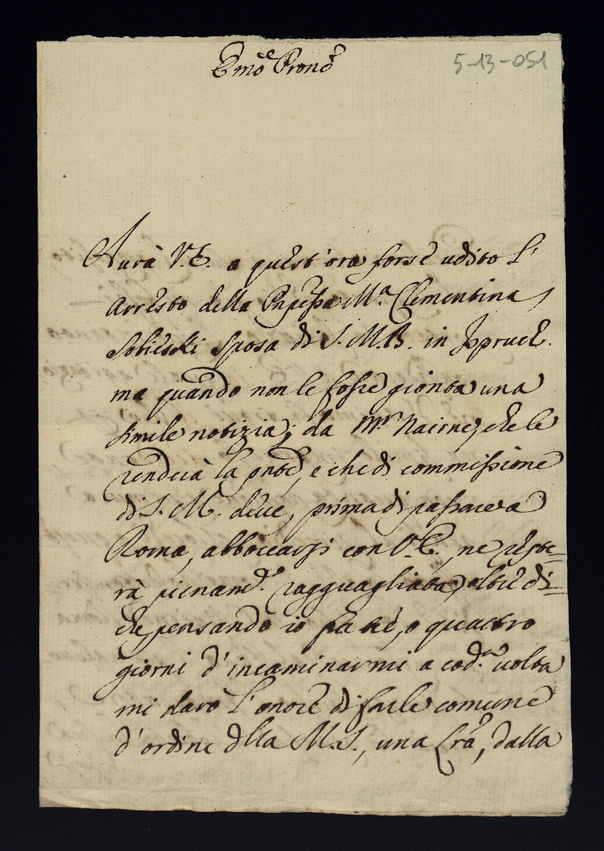 Emõ. Pronẽ.
5-13-051
Aurà V.E. a quest'ora forse udito l'
Arresto della Pnpẽssa M.ª Clementina
Sobieski sposa di S.M.B. in Ispruch.
ma quando non le fosse gionta una
simile notizia, da M.r Nairne, che le
renderà la pntẽ, e che di commissione
di S. M. deve, prima di passare a
Roma, abboccarsi con V.E., ne reste-
rà pienam.te ragguagliata, oltre di
che pensando io fa tré, o quattro
giorni d'incaminarmi a cod.ª volta
mi darò l'onore di farle comune
d'ordine dlla M.S., una Lrã, dalla